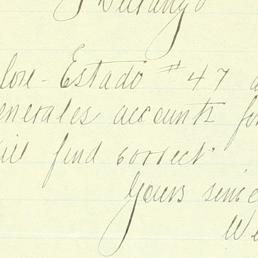 Durango
Estado #47
enerales accounts for
find correct.
Yours since
We